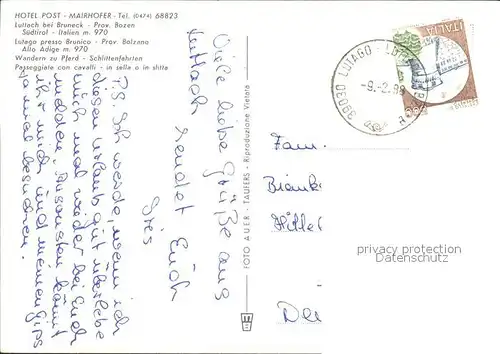 HOTEL POST - MAIRHOFER - Tel. (0474) 68823
Luttach bei Bruneck - Prov. Bozen
Südtirol - Italien m. 970
Lutago presso Brunico - Prov. Bolzano
Alto Adige m. 970
Wandern zu Pferd - Schlittenfahrten
Passeggiate con cavalli - in sella o in slitta
Viele liebe Grüße aus
Luttach sendet Euch
Iris
P.S. Ich werde, wenn ich
diesen Urlaub gut überlebe
mich mal wieder bei Euch
melden. Ansonsten könnt
ihr mich und meinen Gips
ja mal besuchen.
FOTO AUER - TAUFERS - Riproduzione Vietata
ITALIA
39030 LUTAGO
-9.-2.98
Fam.
privacy protection
Datenschutz